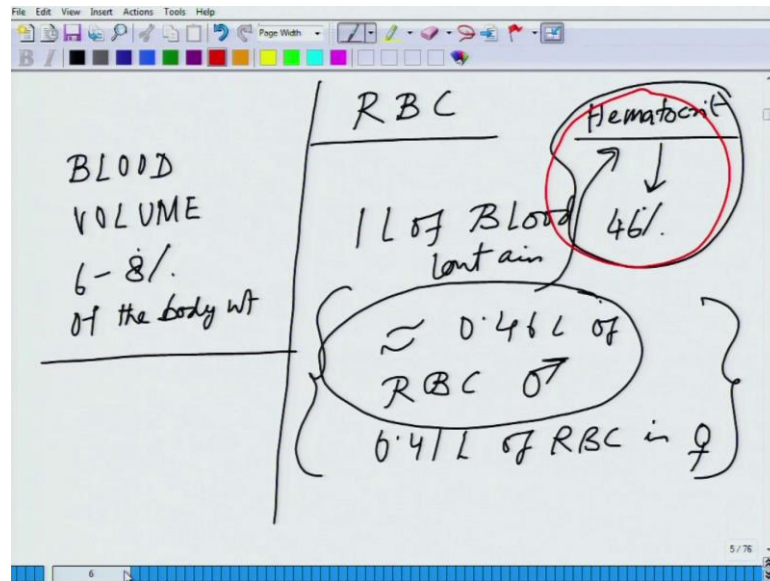 File Edit View Insert Actions Tools Help
Page Width
B I
BLOOD
VOLUME
6-8%.
of the body wt
RBC
Hematocrit
↓
46%.
1 L of BLood
Contain
≈ 0.46 L of
RBC ♂
0.41 L of RBC in ♀
5/76
6